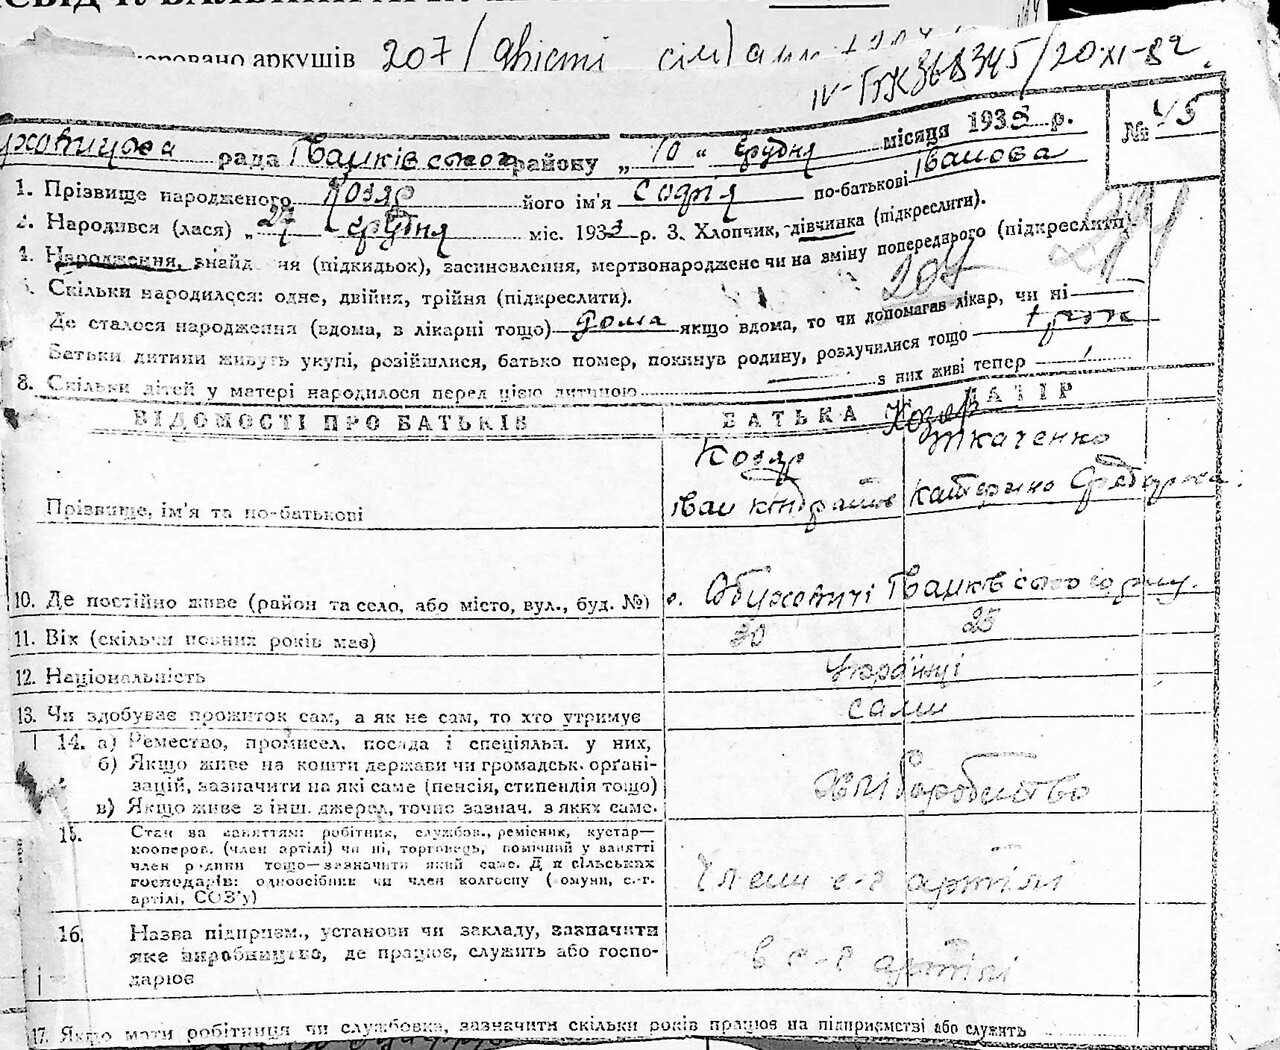 аркушів 207 / двісті сім
IV-ГПК 368345/20-XI-82
№ 45
рада Іванківського району „ 10 “ грудня місяця 1933 р.
1. Прізвище народженого Козяр його ім'я Софія по-батькові Іванова
2. Народився (лася) „ 27 грудня міс. 1933 р. 3. Хлопчик, дівчинка (підкреслити).
4. Народження, (підкидьок), засиновлення, мертвонароджене чи на зміну попереднього (підкреслити)
Скільки народилося: одне, двійня, трійня (підкреслити).
207
Де сталося народження (вдома, в лікарні тощо) дома якщо вдома, то чи допомагав лікар, чи ні
Батьки дитини живуть укупі, розійшлися, батько помер, покинув родину, розлучилися тощо
8. Скільки дітей у матері народилося перед цією дитиною з них живі тепер
ВІДОМОСТІ ПРО БАТЬКІВ БАТЬКА МАТІР
Козяр
Козяр Ткаченко
Прізвище, ім'я та по-батькові Іван Кіндратов Катерина Федорова.
10. Де постійно живе (район та село, або місто, вул., буд. №) с. Обуховичі Іванківського р-ну.
11. Вік (скільки повних років має) 30 25
12. Національність Українці
13. Чи здобуває прожиток сам, а як не сам, то хто утримує сами
14. а) Ремество, промисел. посада і спеціяльн. у них,
б) Якщо живе на кошти держави чи громадськ. орґані-
зацій, зазначити на які саме (пенсія, стипендія тощо)
в) Якщо живе з інш. джерел, точно зазнач. з яких саме.
хліборобство
15. Стан за заняттям: робітник, службов., ремісник, кустар—
кооперов. (член артілі) чи ні, торговець, помічний у занятті
член родини тощо—зазначити який саме. Для сільських
господарів: одноосібник чи член колгоспу (комуни, с.-г.
артілі, СОЗ'у)
Члени с-г артілі
16. Назва підприєм., установи чи закладу, зазначити
яке виробництво, де працює, служить або госпо-
дарює
в с-г артілі
17. Якщо мати робітниця чи службовка, зазначити скільки років працює на підприємстві або служить